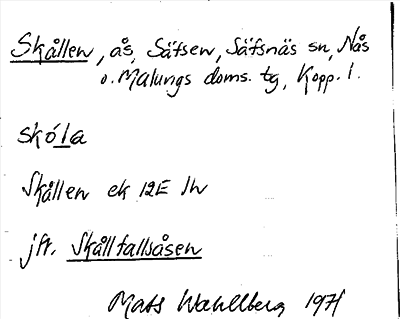 Skållen, ås, Säfsen, Säfsnäs sn, Nås
o. Malungs doms. tg, Kopp. l.
skó̀la
Skållen ek 12E 1h
jfr. Skålltallsåsen
Mats Wahlberg 1971